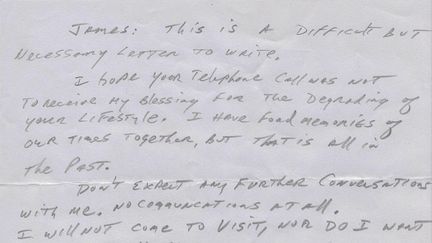 James: This is a difficult but
necessary letter to write.
I hope your telephone call was not
to receive my blessing for the degrading of
your lifestyle. I have fond memories of
our times together, but that is all in
the past.
Don't expect any further conversations
with me. No communcations at all.
I will not come to visit, nor do I want